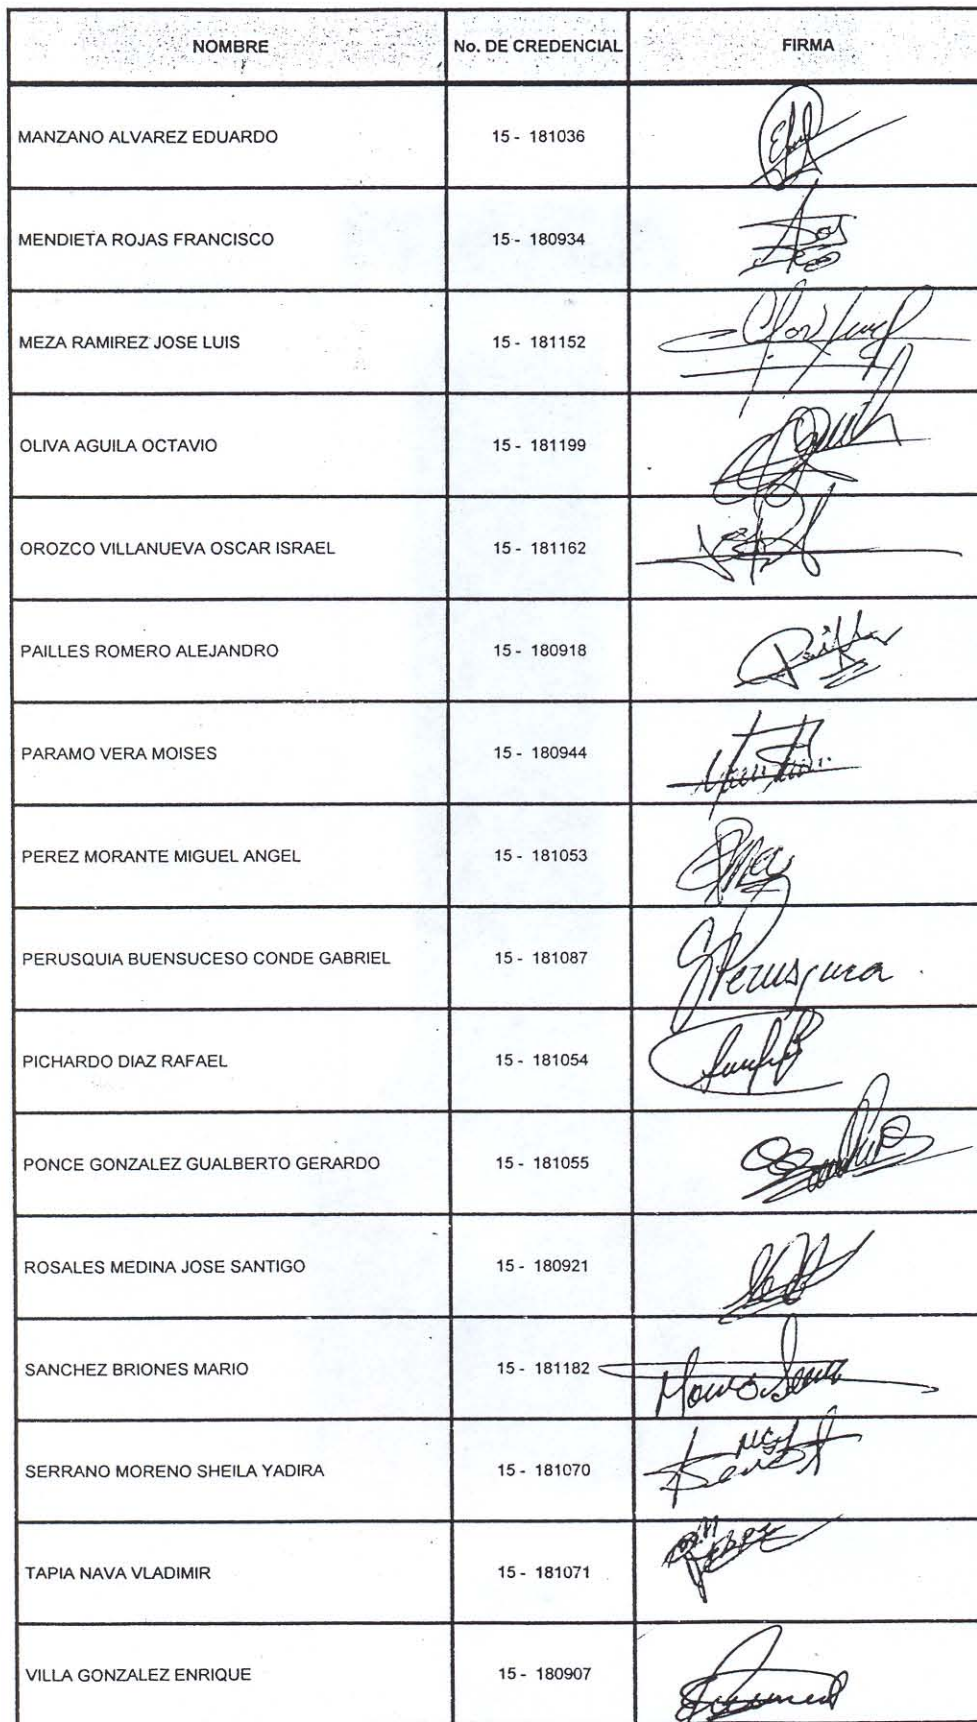 NOMBRE No. DE CREDENCIAL FIRMA
MANZANO ALVAREZ EDUARDO 15 - 181036
MENDIETA ROJAS FRANCISCO 15 - 180934
MEZA RAMIREZ JOSE LUIS 15 - 181152
OLIVA AGUILA OCTAVIO 15 - 181199
OROZCO VILLANUEVA OSCAR ISRAEL 15 - 181162
PAILLES ROMERO ALEJANDRO 15 - 180918
PARAMO VERA MOISES 15 - 180944
PEREZ MORANTE MIGUEL ANGEL 15 - 181053
PERUSQUIA BUENSUCESO CONDE GABRIEL 15 - 181087
PICHARDO DIAZ RAFAEL 15 - 181054
PONCE GONZALEZ GUALBERTO GERARDO 15 - 181055
ROSALES MEDINA JOSE SANTIGO 15 - 180921
SANCHEZ BRIONES MARIO 15 - 181182
SERRANO MORENO SHEILA YADIRA 15 - 181070
TAPIA NAVA VLADIMIR 15 - 181071
VILLA GONZALEZ ENRIQUE 15 - 180907